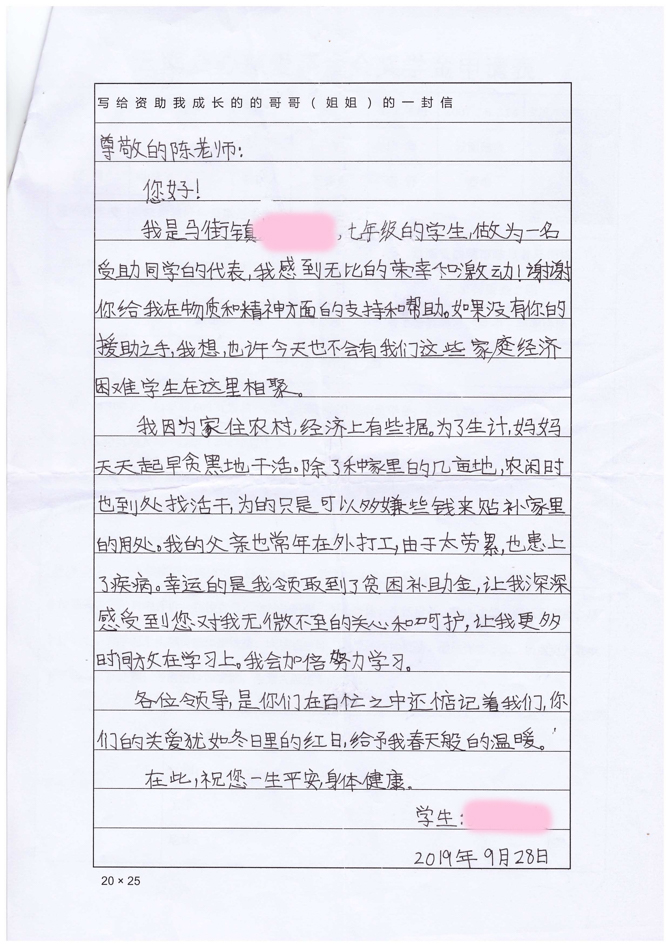 写给资助我成长的的哥哥（姐姐）的一封信
尊敬的陈老师：
您好！
我是马街镇，七年级的学生，做为一名
受助同学的代表，我感到无比的荣幸和激动！谢谢
你给我在物质和精神方面的支持和帮助。如果没有你的
援助之手，我想，也许今天也不会有我们这些家庭经济
困难学生在这里相聚。
我因为家住农村，经济上有些据。为了生计，妈妈
天天起早贪黑地干活。除了种家里的几亩地，农闲时
也到处找活干，为的只是可以多嫌些钱来贴补家里
的用处。我的父亲也常年在外打工，由于太劳累，也患上
了疾病。幸运的是我领取到了贫困补助金，让我深深
感受到您对我无微不至的关心和呵护，让我更多
时间放在学习上。我会加倍努力学习。
各位领导，是你们在百忙之中还惦记着我们，你
们的关爱犹如冬日里的红日，给予我春天般的温暖。
在此，祝您一生平安，身体健康。
学生：
2019年9月28日
20×25